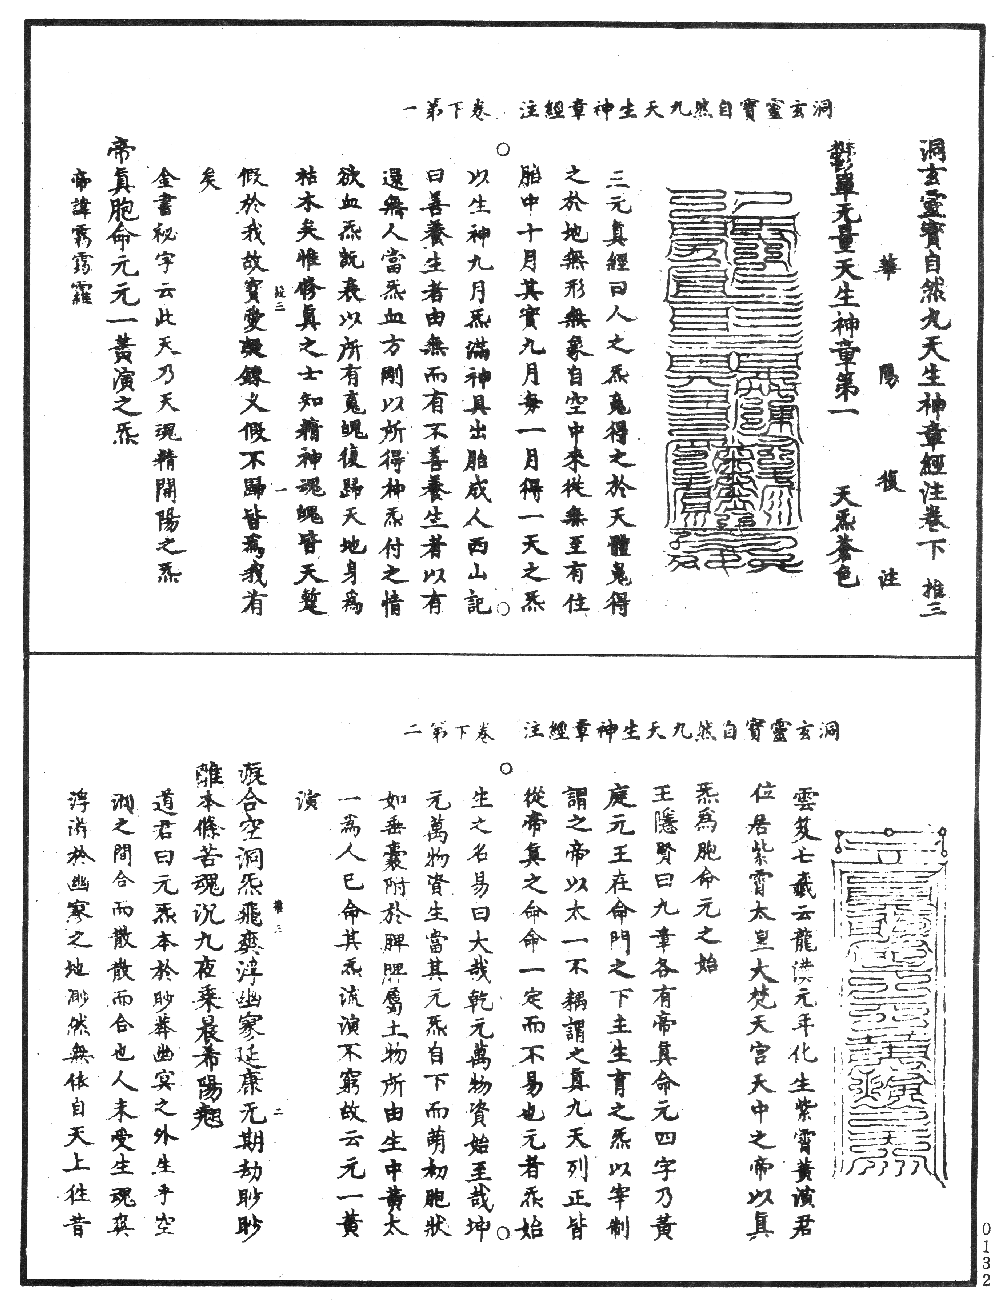 洞玄靈寶自然九天生神章經注 卷下第一
洞玄靈寶自然九天生神章經注卷下 推三
華陽復 注
鬱單无量天生神章第一 天炁蒼色
三元真經曰人之炁䰟得之於天體鬼得
之於地無形無象自空中來從無至有住
胎中十月其實九月每一月得一天之炁
以生神九月炁滿神具出胎成人西山記
曰善養生者由無而有不善養生者以有
還無人當炁血方剛以所得神炁付之情
欲血炁既衰以所有䰟魄復歸天地身爲
枯木矣惟修真之士知精神魂魄皆天蹔
假於我故寶愛凝鍊义假不歸皆爲我有
矣
金書祕字云此天乃天魂精開陽之炁
帝真胞命元元一黃演之炁
帝諱霐霶羅
洞玄靈寶自然九天生神章經注 卷下第二
雲笈七籤云龍漢元年化生紫霄黃演君
位居紫霄太皇大梵天宮天中之帝以真
炁爲胞命元之始
王隱賢曰九章各有帝真命元四字乃黃
庭元王在命門之下主生育之炁以宰制
謂之帝以太一不耦謂之真九天列正皆
從帝真之命命一定而不易也元者炁始
生之名易曰大哉乾元萬物資始至哉坤
元萬物資生當其元炁自下而萌初胞狀
如垂囊附於脾脾屬土物所由生中黃太
一爲人已命其炁流演不窮故云元一黃
演
混合空洞炁飛爽浮幽寥延康无期劫眇眇
離本條苦魂沉九夜乘晨希陽翹
道君曰元炁本於眇莽幽冥之外生乎空
洞之間合而散散而合也人未受生魂爽
浮游於幽寥之地眇然無依自天上往昔
0132